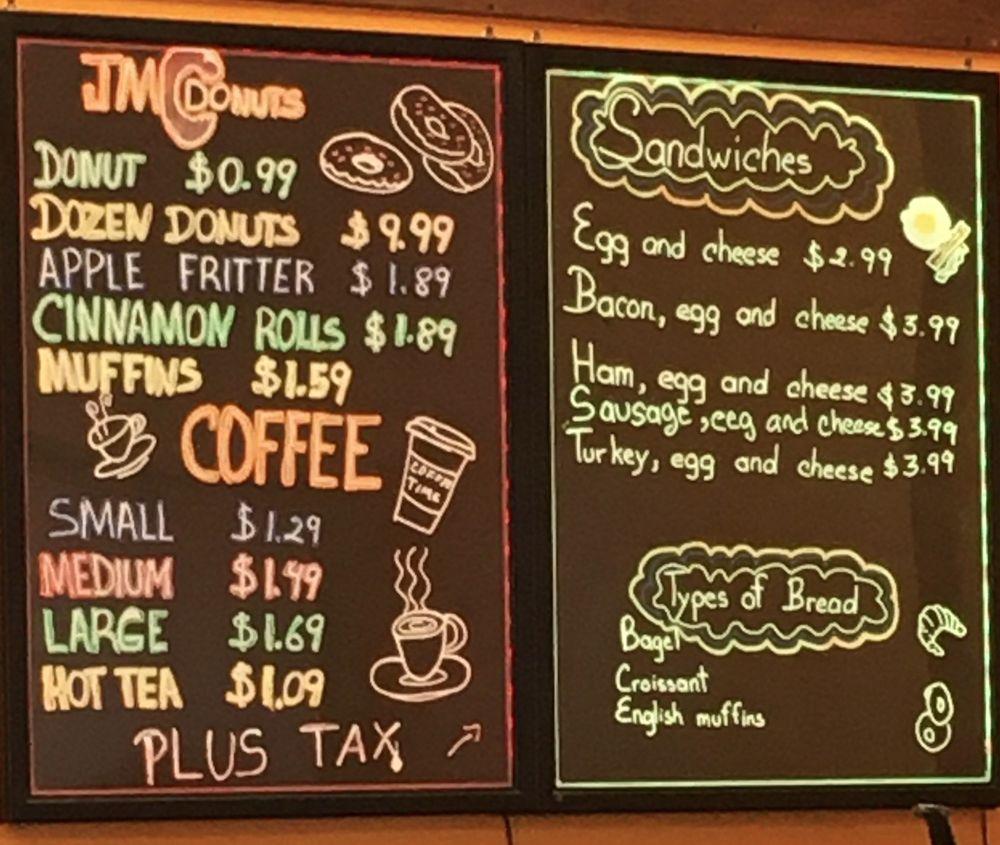 JMC DONUTS
DONUT $0.99
DOZEN DONUTS $9.99
APPLE FRITTER $1.89
CINNAMON ROLLS $1.89
MUFFINS $1.59
COFFEE
COFFEE
TIME
SMALL $1.29
MEDIUM $1.49
LARGE $1.69
HOT TEA $1.09
PLUS TAX
Sandwiches
Egg and cheese $2.99
Bacon, egg and cheese $3.99
Ham, egg and cheese $3.99
Sausage, eeg and cheese $3.99
Turkey, egg and cheese $3.99
Types of Bread
Bagel
Croissant
English muffins